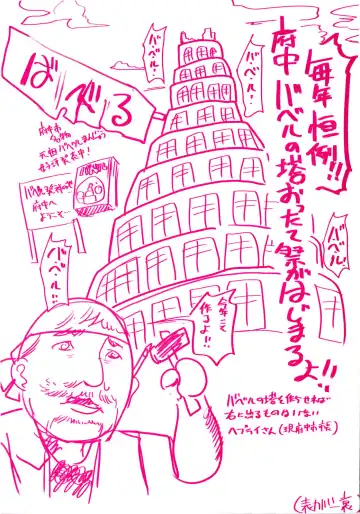 毎年恒例!!
府中バベルの塔おったて祭がはじまるよ!!
ばべる
バベル…
バベル…
バベル…
バベル!
バベル…
府中市
名物
天祖バベルまんじゅう
好評発売中!
府中へ
ようこそ
今年こそ
作るよ!!
バベルの塔を倒せれば
右に出るものはいない
ヘブライさん